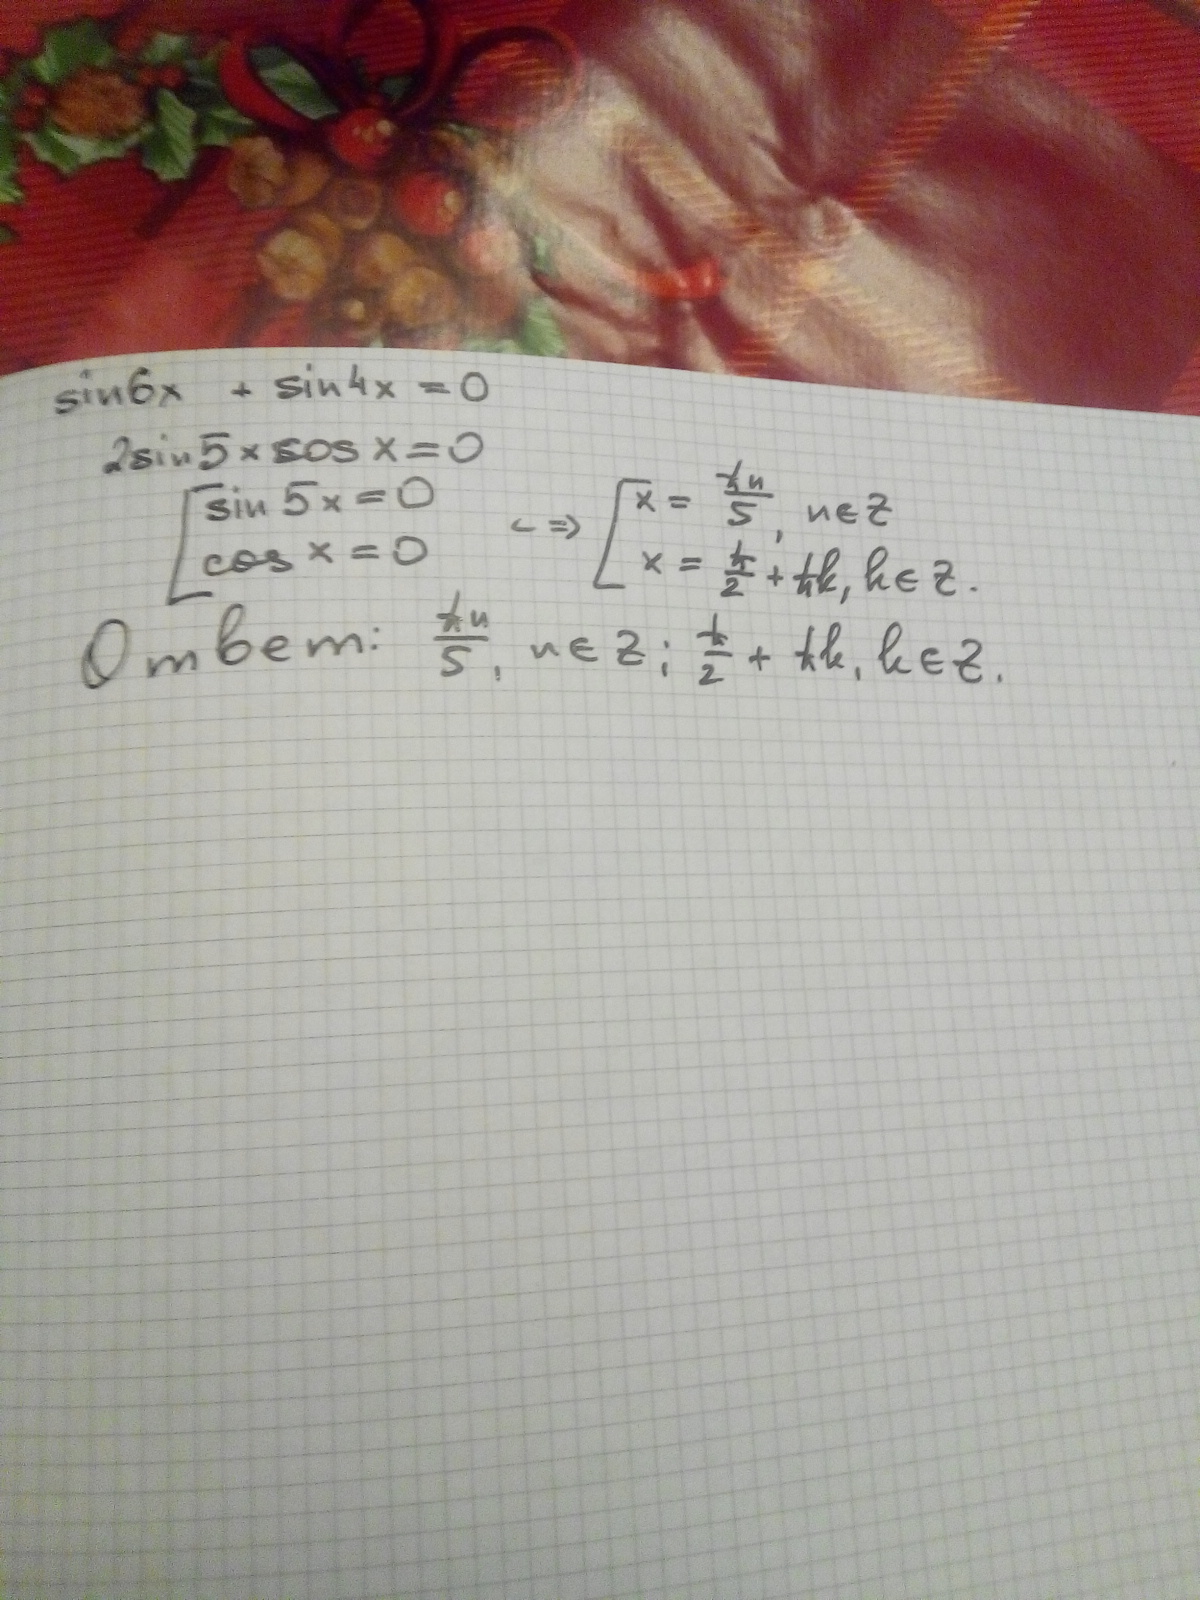 sin6x + sin4x = 0
2sin5x cos x = 0
[ sin 5x = 0 <=> [ x = πn/5, n∈Z
cos x = 0 x = π/2 + πk, k∈Z.
Ответ: πn/5, n∈Z; π/2 + πk, k∈Z.